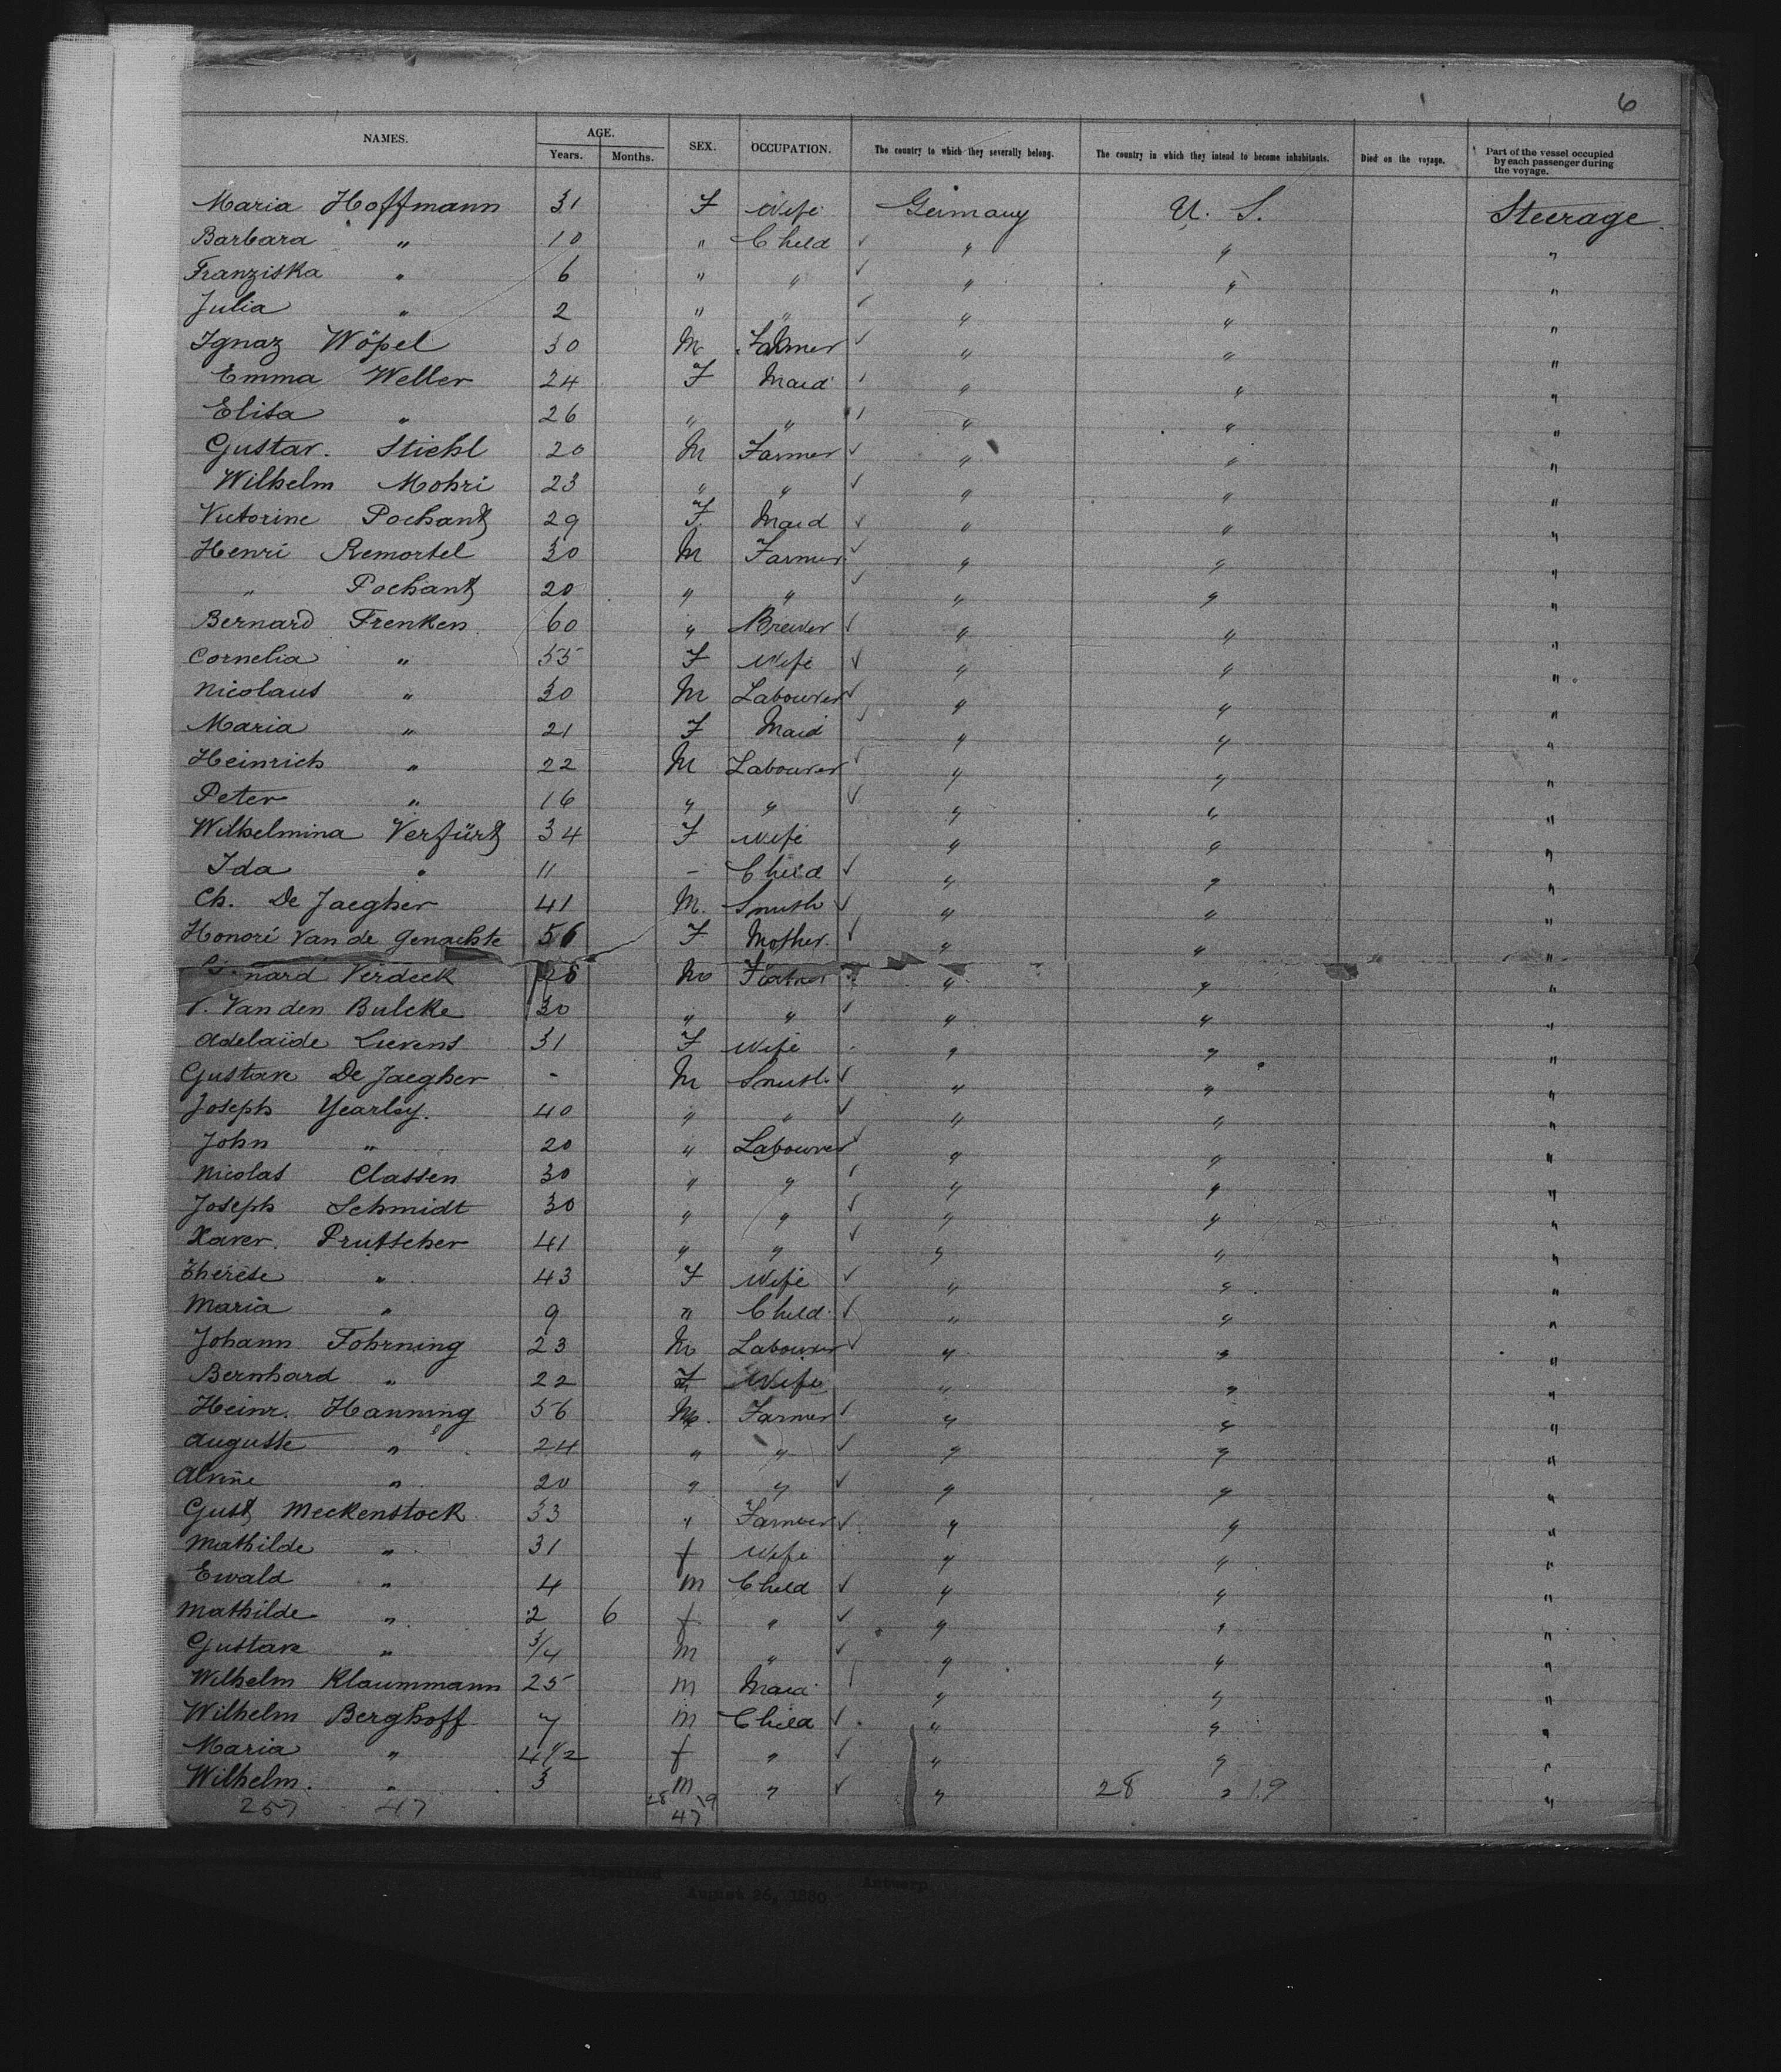 6
NAMES. AGE. Years. Months. SEX. OCCUPATION. The country to which they severally belong. The country in which they intend to become inhabitants. Died on the voyage. Part of the vessel occupied by each passenger during the voyage.
Maria Hoffmann 31 F Wife Germany U. S. Steerage
Barbara " 10 " Child " " "
Franziska " 6 " " " " "
Julia " 2 " " " " "
Ignaz Wöpel 30 M Farmer " " "
Emma Weller 24 F Maid " " "
Elisa " 26 " " " " "
Gustav. Stiehl 20 M Farmer " " "
Wilhelm Mohri 23 " " " " "
Victorine Pochantz 29 F. Maid " " "
Henri Remortel 30 M Farmer " " "
" Pochantz 20 " " " " "
Bernard Frenken 60 " Brewer " " "
Cornelia " 55 F Wife " " "
Nicolaus " 30 M Labourer " " "
Maria " 21 F Maid " " "
Heinrich " 22 M Labourer " " "
Peter " 16 " " " " "
Wilhelmina Verfürtz 34 F Wife " " "
Ida " 11 - Child " " "
Ch. De Jaegher 41 M. Smith " " "
Honoré Van de Genachte 56 F Mother " " "
nard Verdeck M " " "
V. Van den Bulcke 30 " " " " "
Adelaïde Lievens 31 F Wife " " "
Gustave De Jaegher - M Smith " " "
Joseph Yearley. 40 " " " " "
John " 20 " Labourer " " "
Nicolas Classen 30 " " " " "
Joseph Schmidt 30 " " " " "
Xaver. Prutscher 41 " " " " "
Therese " 43 F Wife " " "
Maria " 9 " Child " " "
Johann Fohrning 23 M Labourer " " "
Bernhard " 22 F Wife " " "
Heinr. Hanning 56 M. Farmer " " "
Auguste " 24 " " " " "
Alvine " 20 " " " " "
Gust Meckenstock 33 " Farmer " " "
Mathilde " 31 f Wife " " "
Ewald " 4 m Child " " "
Mathilde " 2 6 f " " " "
Gustave " 3/4 m " " " "
Wilhelm Klaummann 25 m Maid " " "
Wilhelm Berghoff 7 m Child " " "
Maria " 4 1/2 f " " " "
Wilhelm. " 3 m " " " "
28 19
257 47 28 19
47
Antwerp
August 26, 1880